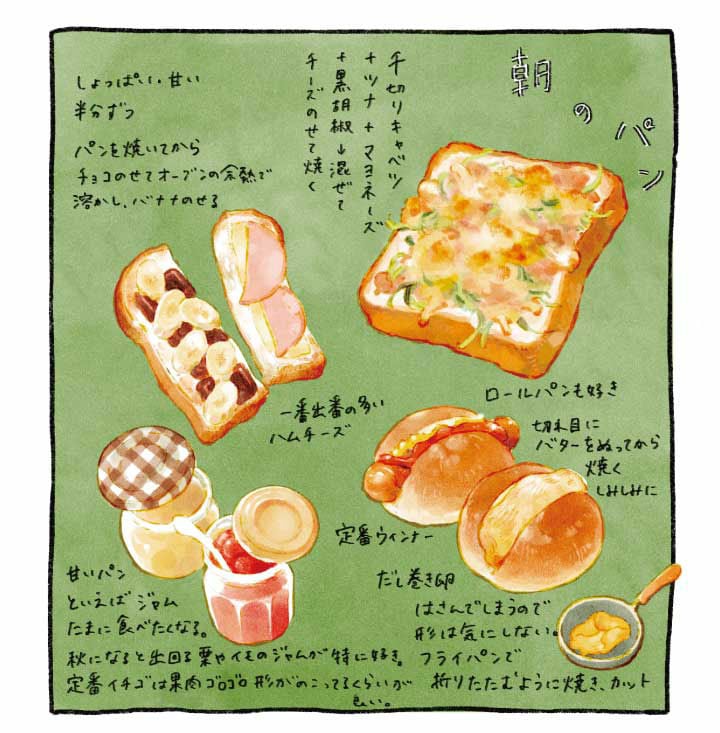 朝のパン
千切りキャベツ
+ツナ+マヨネーズ
+黒胡椒→混ぜて
チーズのせて焼く
しょっぱい、甘い
半分ずつ
パンを焼いてから
チョコのせてオーブンの余熱で
溶かし、バナナのせる
一番出番の多い
ハムチーズ
ロールパンも好き
切れ目に
バターをぬってから
焼く
しみしみに
定番ウィンナー
だし巻き卵
はさんでしまうので
形は気にしない。
フライパンで
折りたたむように焼き、カット
甘いパン
といえばジャム
たまに食べたくなる。
秋になると出回る栗やイモのジャムが特に好き。
定番イチゴは果肉ゴロゴロ形がのこってるくらいが
良い。